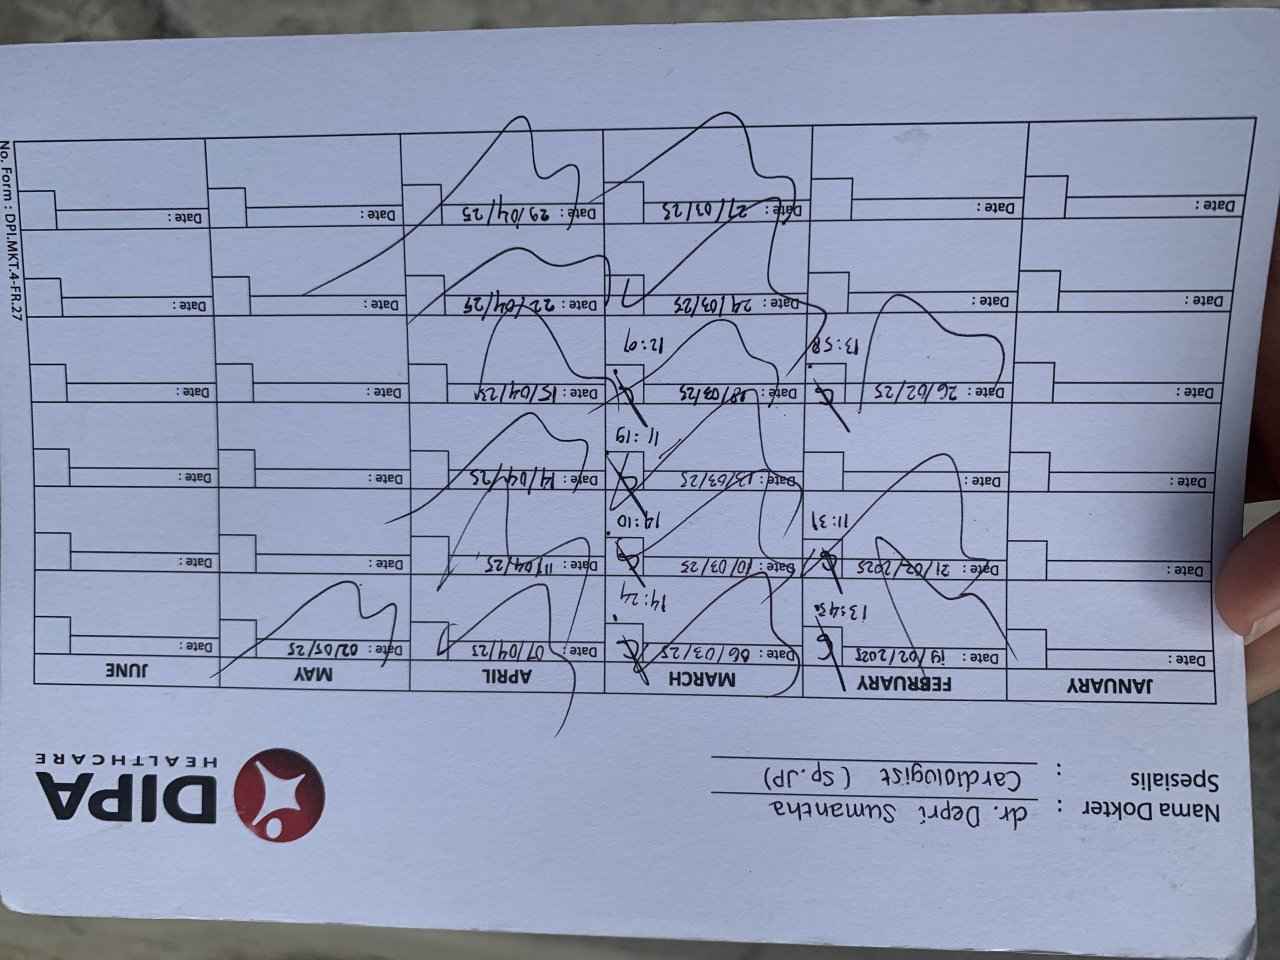 Nama Dokter : dr. Depri Sumantha
Spesialis : Cardiologist (Sp.JP)
DIPA
HEALTHCARE
JANUARY FEBRUARY MARCH APRIL MAY JUNE
Date : Date : 19/02/2025 Date : 06/03/25 Date : 07/04/25 Date : 02/05/25 Date :
13:45 14:24
Date : Date : 21/02/2025 Date : 10/03/25 Date : 11/04/25 Date : Date :
11:31 14:10
Date : Date : Date : 13/03/25 Date : 14/04/25 Date : Date :
11:19
Date : Date : 26/02/25 Date : 18/03/25 Date : 15/04/25 Date : Date :
13:58 12:07
Date : Date : Date : 24/03/25 Date : 22/04/25 Date : Date :
Date : Date : Date : 27/03/25 Date : 29/04/25 Date : Date :
No. Form : DPI.MKT.4-FR.27